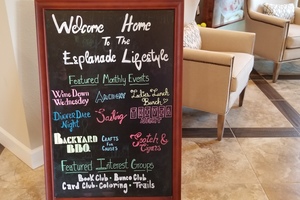 Welcome Home
To The
Esplanade Lifestyle
Featured Monthly Events
Wine Down
Wednesday
Dinner Date
Night
Sailing
Backyard
BBQ
Crafts
for
Causes
Scotch &
Cigars
Featured Interest Groups
Book Club - Bunco Club
Card Club - Coloring - Trails